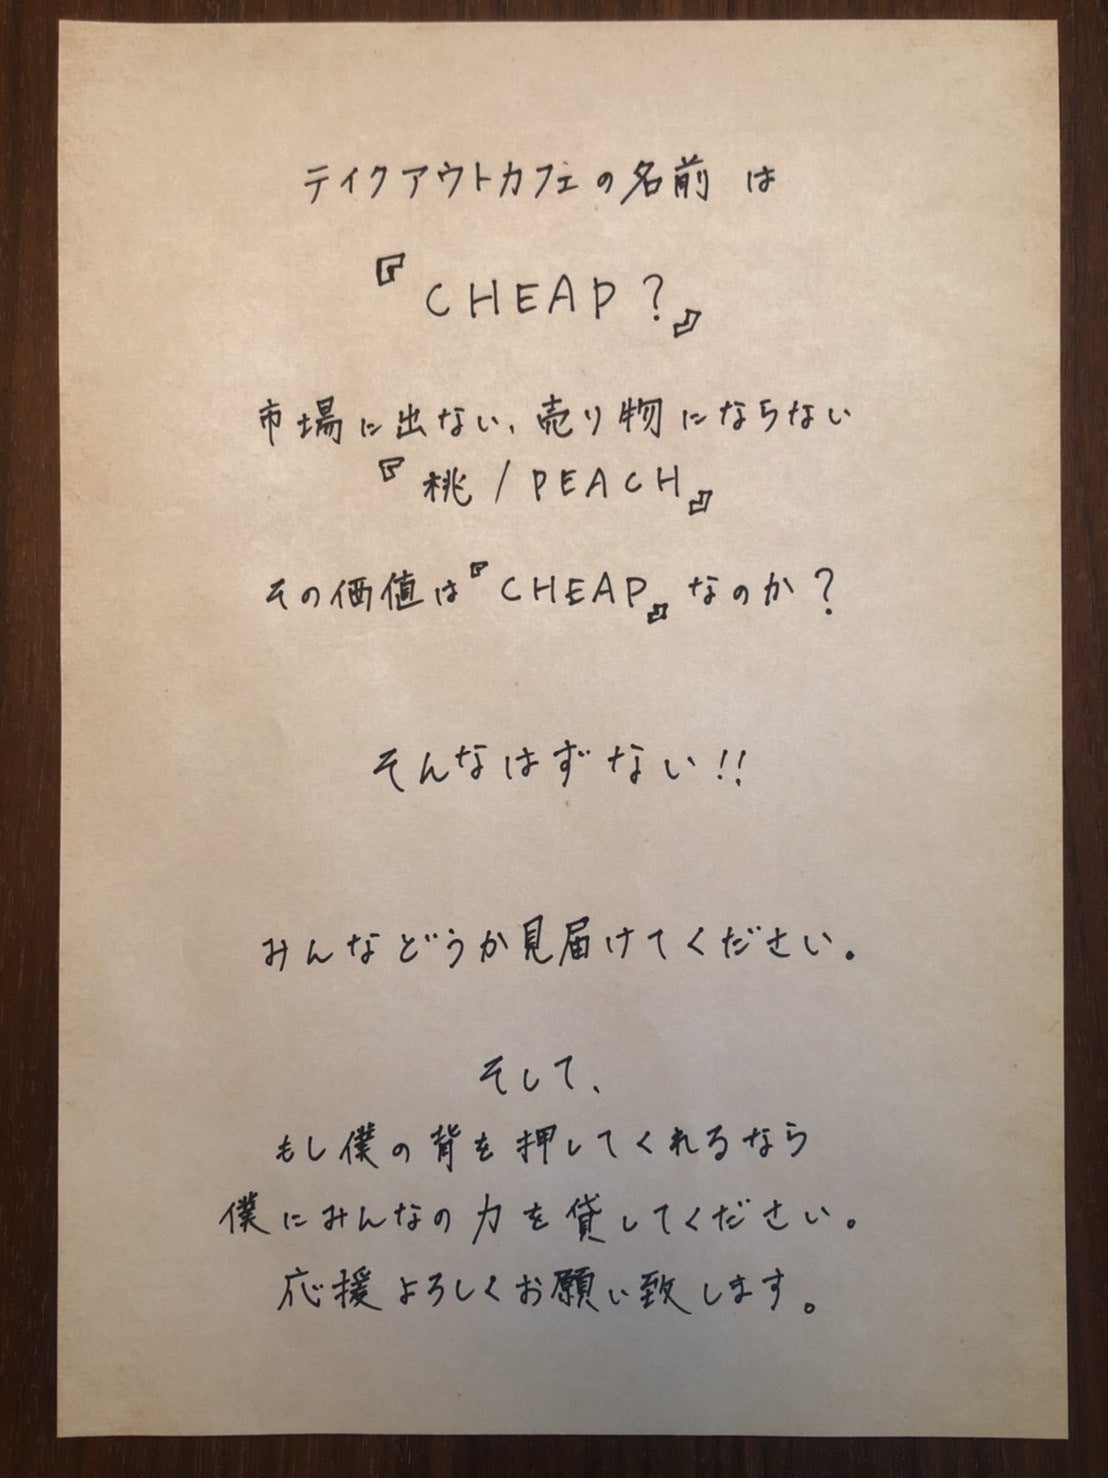 テイクアウトカフェの名前は
『CHEAP?』
市場に出ない、売り物にならない
『桃/PEACH』
その価値は『CHEAP』なのか?
そんなはずない!!
みんなどうか見届けてください。
そして、
もし僕の背を押してくれるなら
僕にみんなの力を貸してください。
応援よろしくお願い致します。